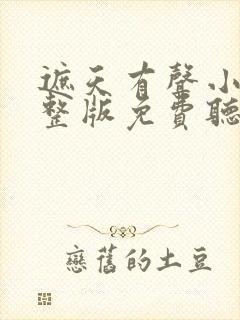 遮天有聲小
整版免費聽
戀舊的土豆